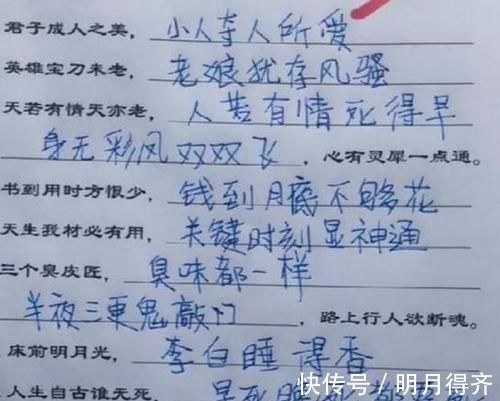 君子成人之美，小人夺人所爱
英雄宝刀未老，老娘犹存风骚
天若有情天亦老，人若有情死得早
身无彩凤双双飞，心有灵犀一点通。
书到用时方恨少，钱到月底不够花
天生我材必有用，关键时刻显神通
三个臭皮匠，臭味都一样
半夜三更鬼敲门，路上行人欲断魂。
床前明月光，李白睡得香
人生自古谁无死，早死晚死都
快传号 / 明月得齐